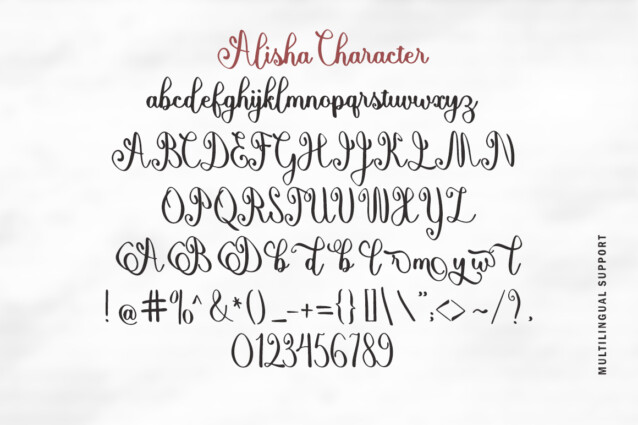 Alisha Character
abcdefghijklmnopqrstuvwxyz
ABCDEFGHIJKLMN
OPQRSTUVWXYZ
A B D b d b l r m o y w t
!@#%^&*()_-+={}[]|\\";<>~/?,
0123456789
MULTILINGUAL SUPPORT